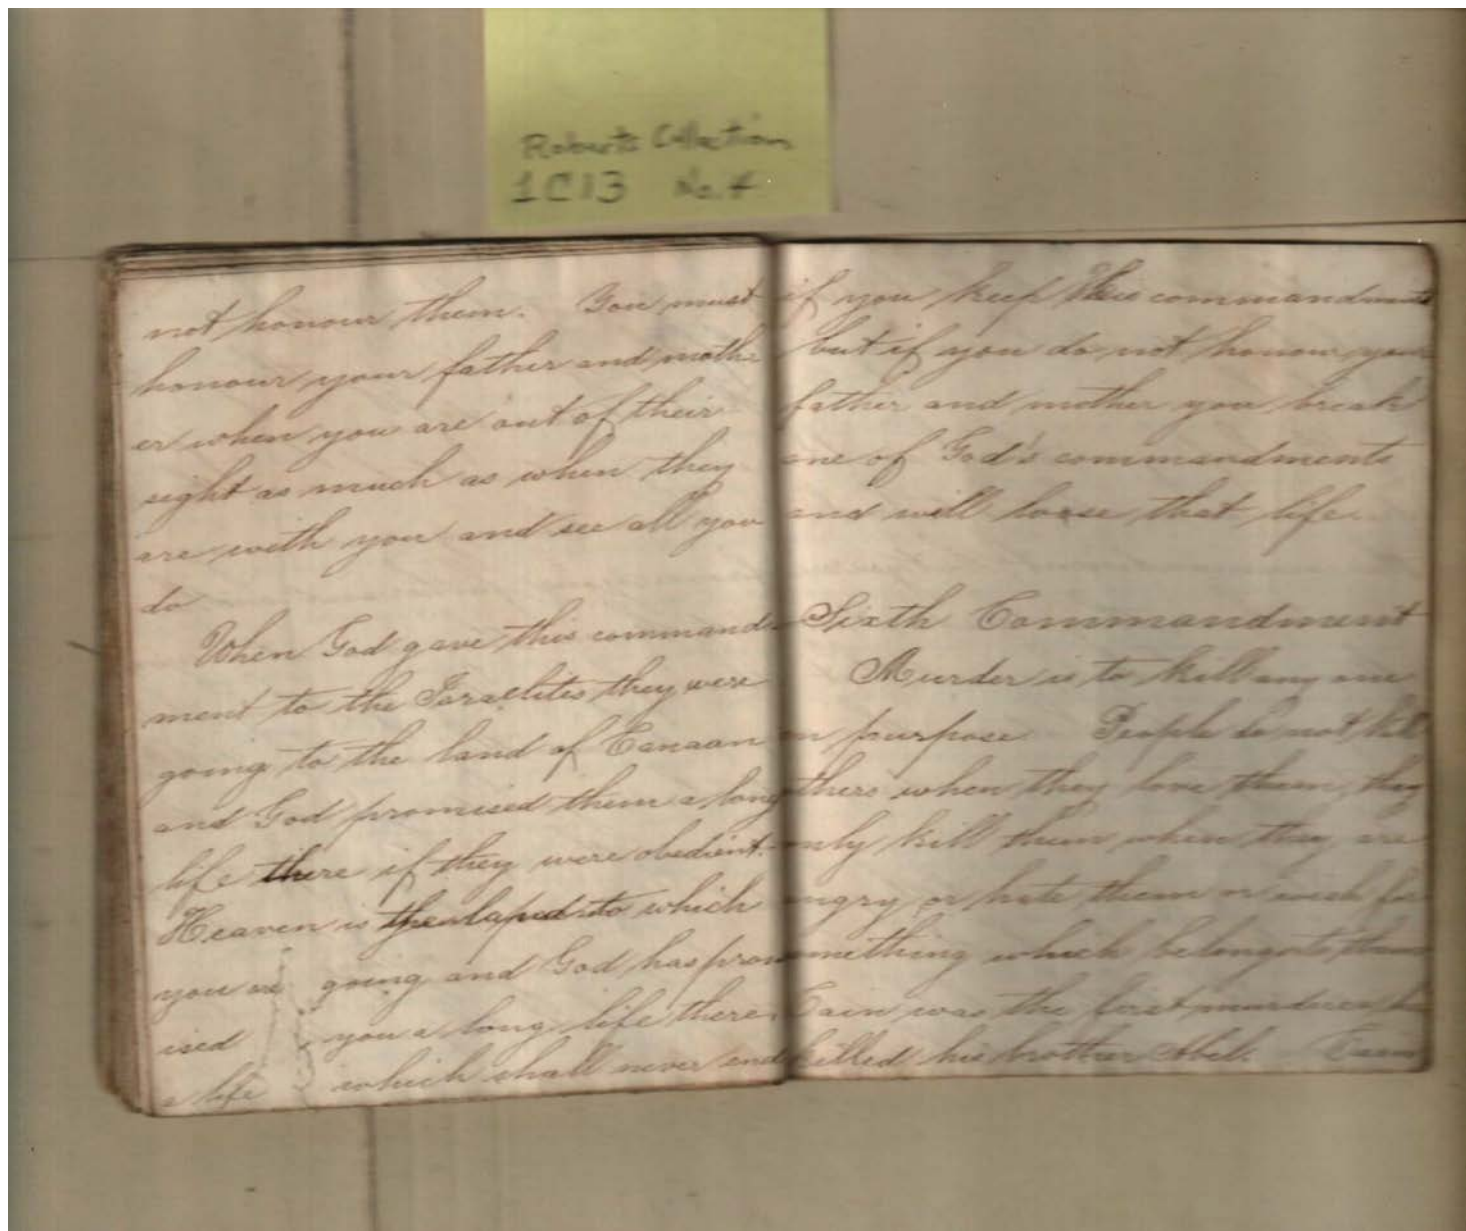 Roberts Collection
1C13 No. 4
not honour them. You must
honour your father and moth-
er when you are out of their
sight as much as when they
are with you and see all you
do
When God gave this command-
ment to the Israelites they were
going to the land of Canaan
and God promised them a long
life there if they were obedient.
Heaven is the land to which
you are going and God has prom
ised you a long life there
a life which shall never end
if you keep this commandment
but if you do not honour your
father and mother you break
one of God's commandments
and will loose that life.
Sixth Commandment
Murder is to kill any one
on purpose People do not kill
others when they love them, they
only kill them when they are
angry or hate them or wish for
something which belongs to them
Cain was the first murderer he
killed his brother Abel. Cain